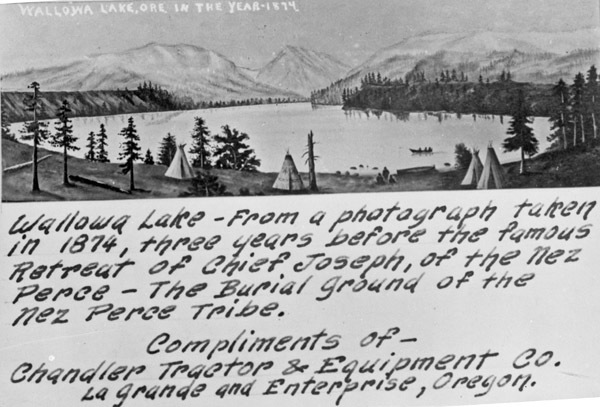 WALLOWA LAKE, ORE IN THE YEAR-1874
Wallowa Lake - From a photograph taken
in 1874, three years before the famous
Retreat of Chief Joseph, of the Nez
Perce - The Burial ground of the
Nez Perce Tribe.
Compliments of-
Chandler Tractor & Equipment Co.
La grande and Enterprise, Oregon.